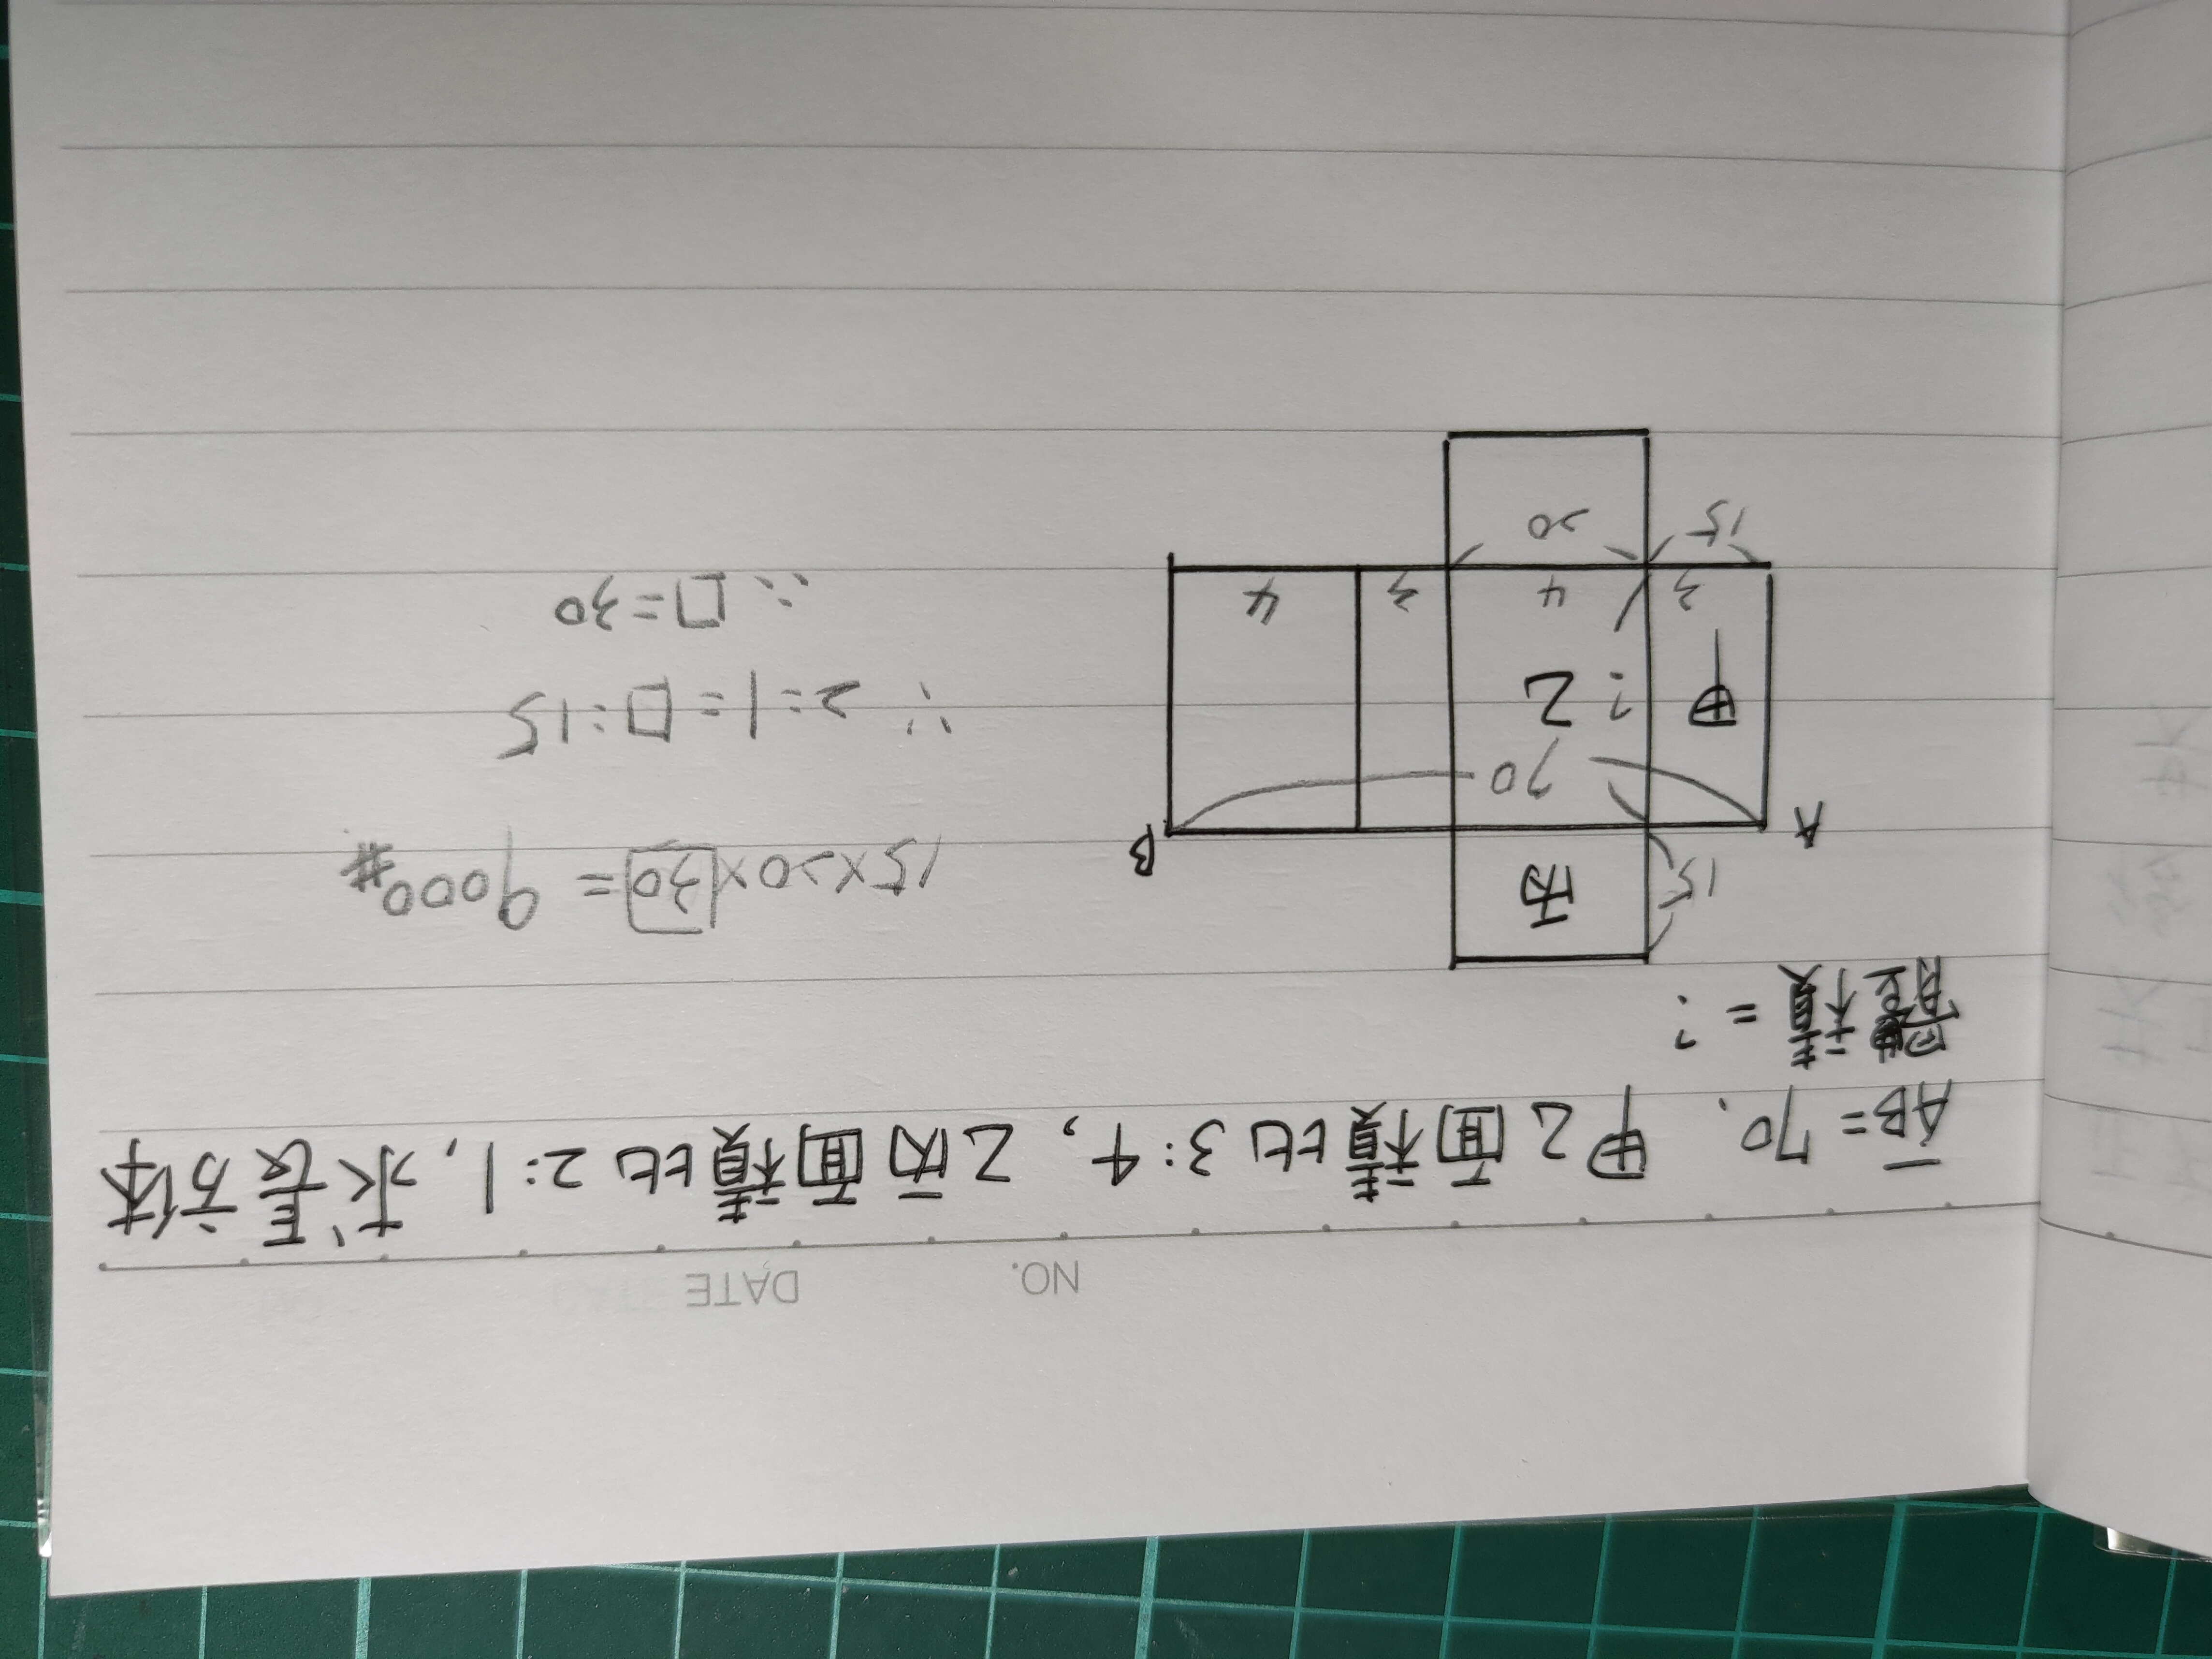 NO. DATE
AB=70, 甲乙面積比3:4, 乙丙面積比2:1, 求長方體
體積=?
丙
15
A
B
70
甲
?
乙
3
4
3
4
15
20
15×20×30=9000#
∵ 2:1=□:15
∴ □=30